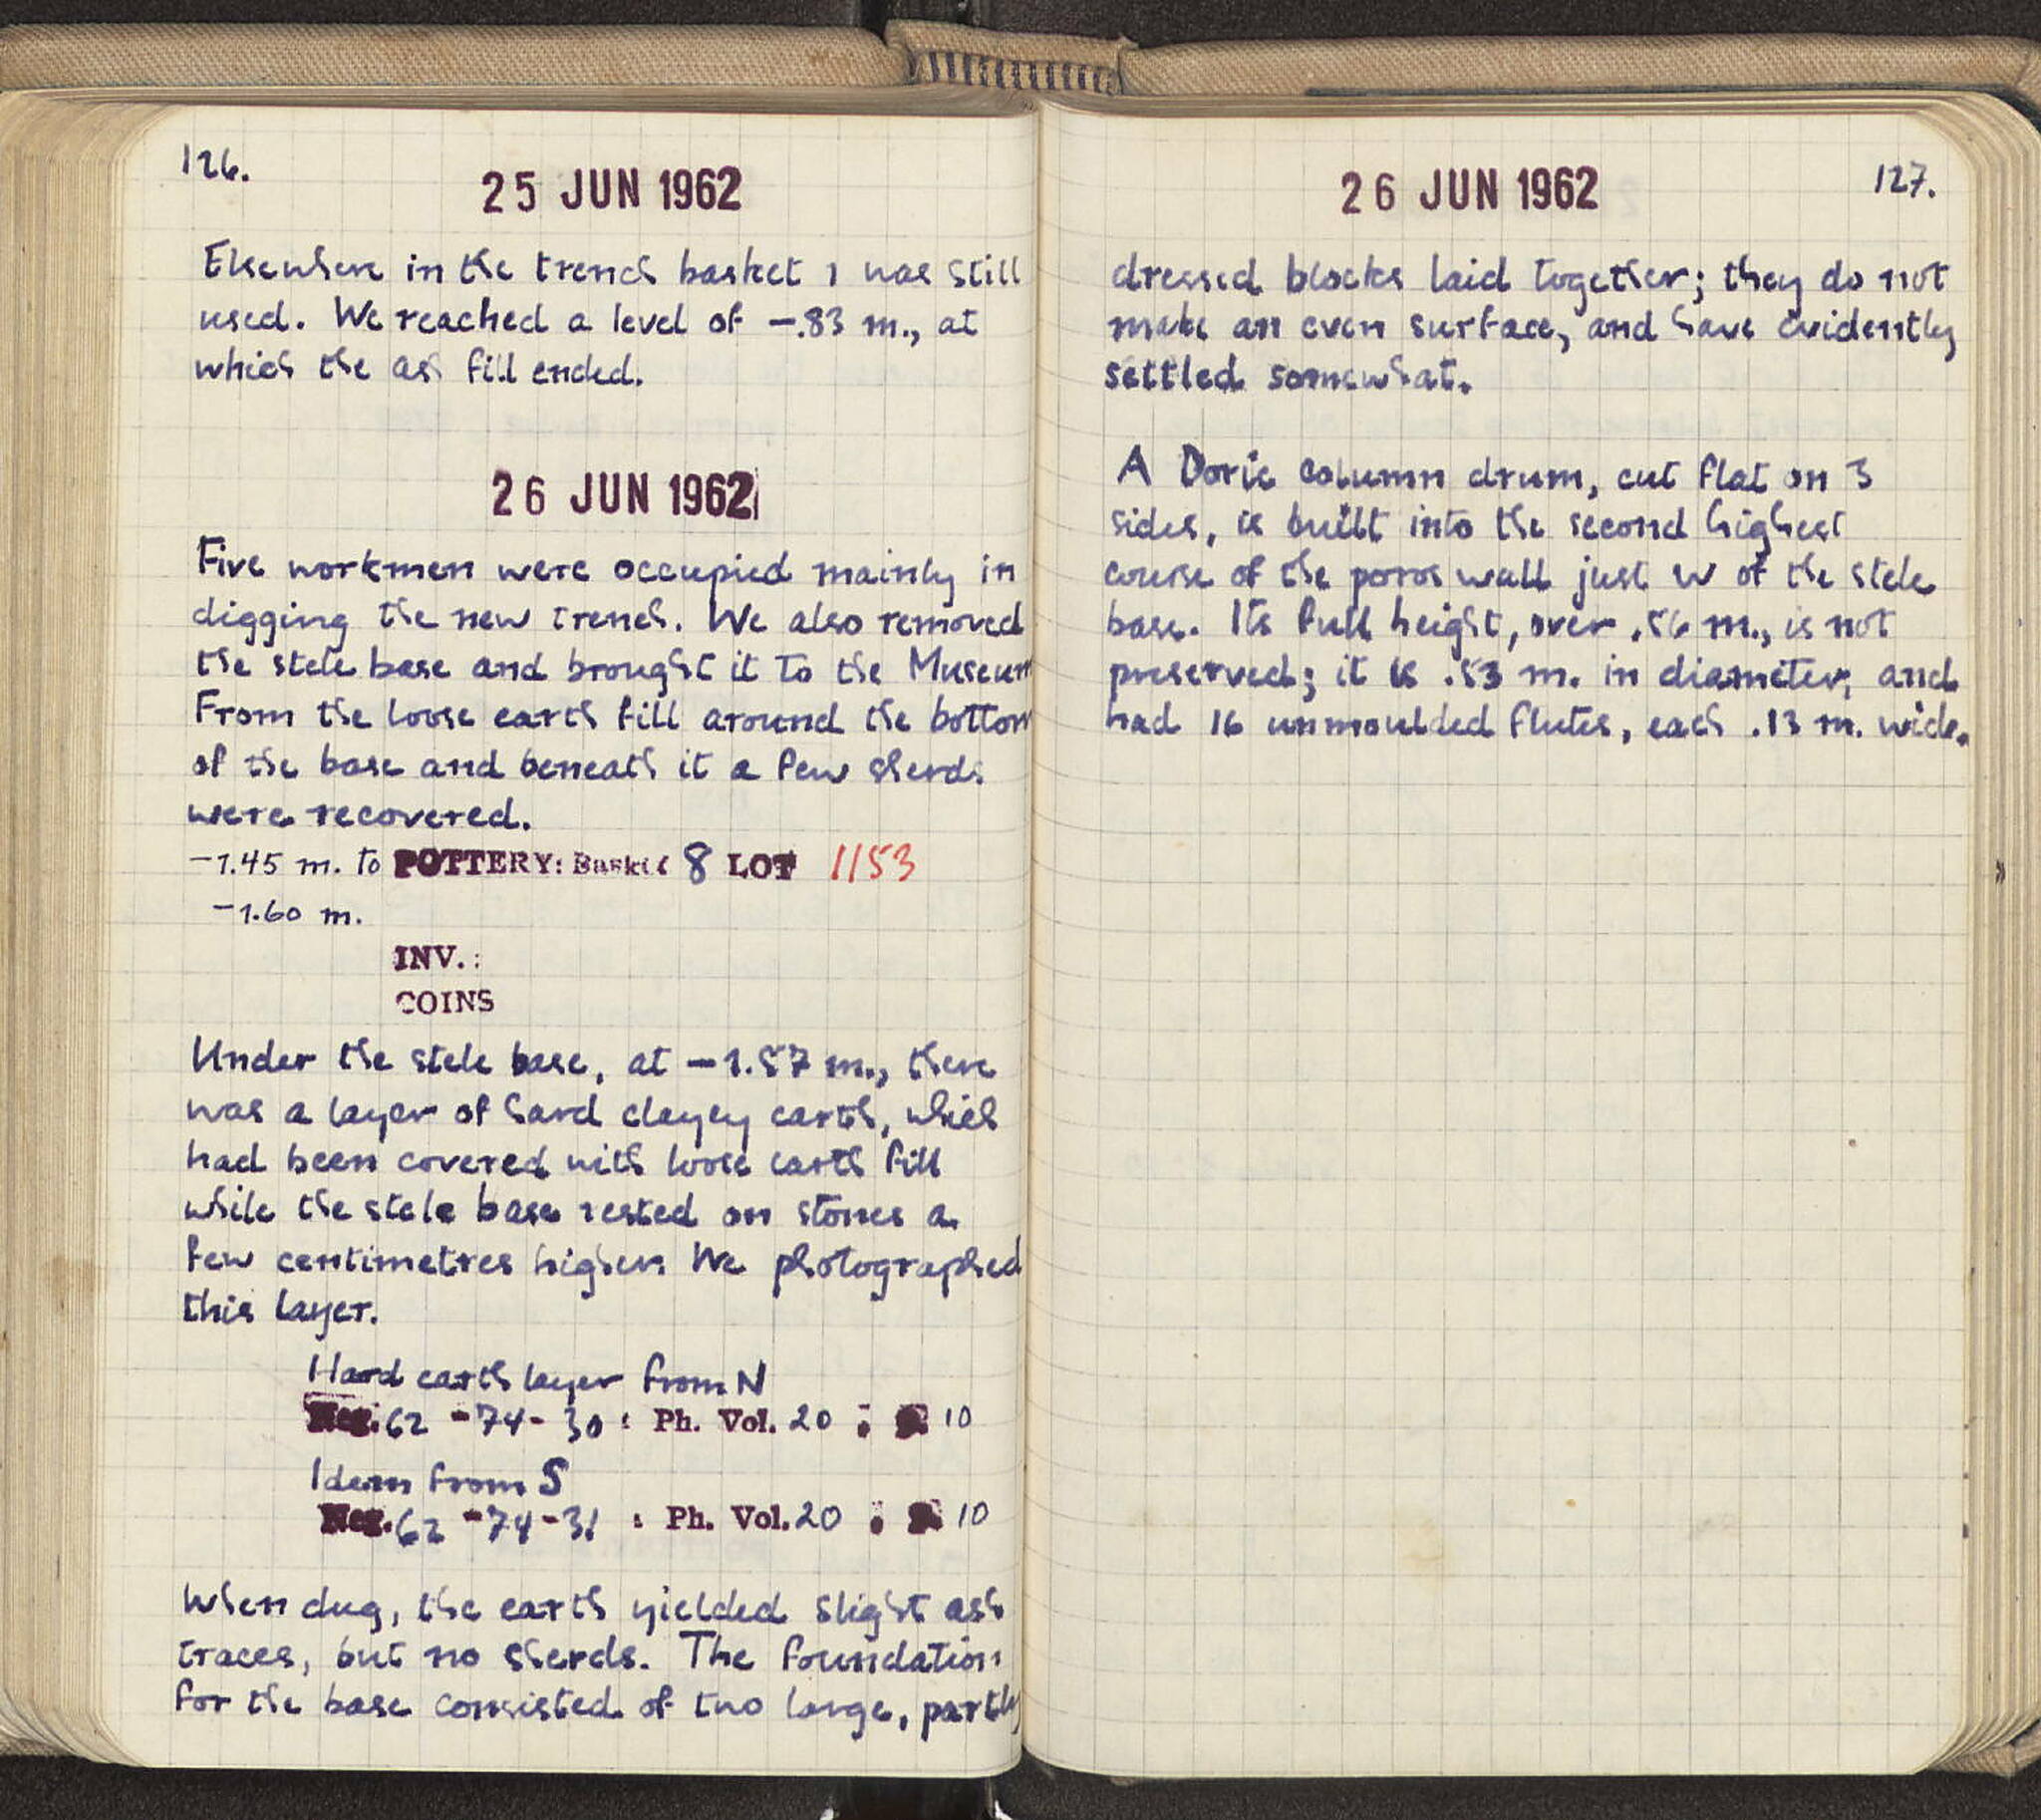 126.
25 JUN 1962
Elsewhere in the trench basket 1 was still
used. We reached a level of -.83 m., at
which the ash fill ended.
26 JUN 1962
Five workmen were occupied mainly in
digging the new trench. We also removed
the stele base and brought it to the Museum
From the loose earth fill around the bottom
of the base and beneath it a few sherds
were recovered.
-1.45 m. to POTTERY: Basket 8 LOT 1153
-1.60 m.
INV.:
COINS
Under the stele base, at -1.57 m., there
was a layer of hard clayey earth, which
had been covered with loose earth fill
while the stele base rested on stones a
few centimetres higher. We photographed
this layer.
Hard earth layer from N
Neg. 62 - 74 - 30 : Ph. Vol. 20 : 10
Idem from S
Neg. 62 - 74 - 31 : Ph. Vol. 20 : 10
When dug, the earth yielded slight ash
traces, but no sherds. The foundation
for the base consisted of two large, partly
26 JUN 1962
127.
dressed blocks laid together; they do not
make an even surface, and have evidently
settled somewhat.
A Doric column drum, cut flat on 3
sides, is built into the second highest
course of the poros wall just W of the stele
base. Its full height, over .56 m., is not
preserved; it is .53 m. in diameter, and
had 16 unmoulded flutes, each .13 m. wide.